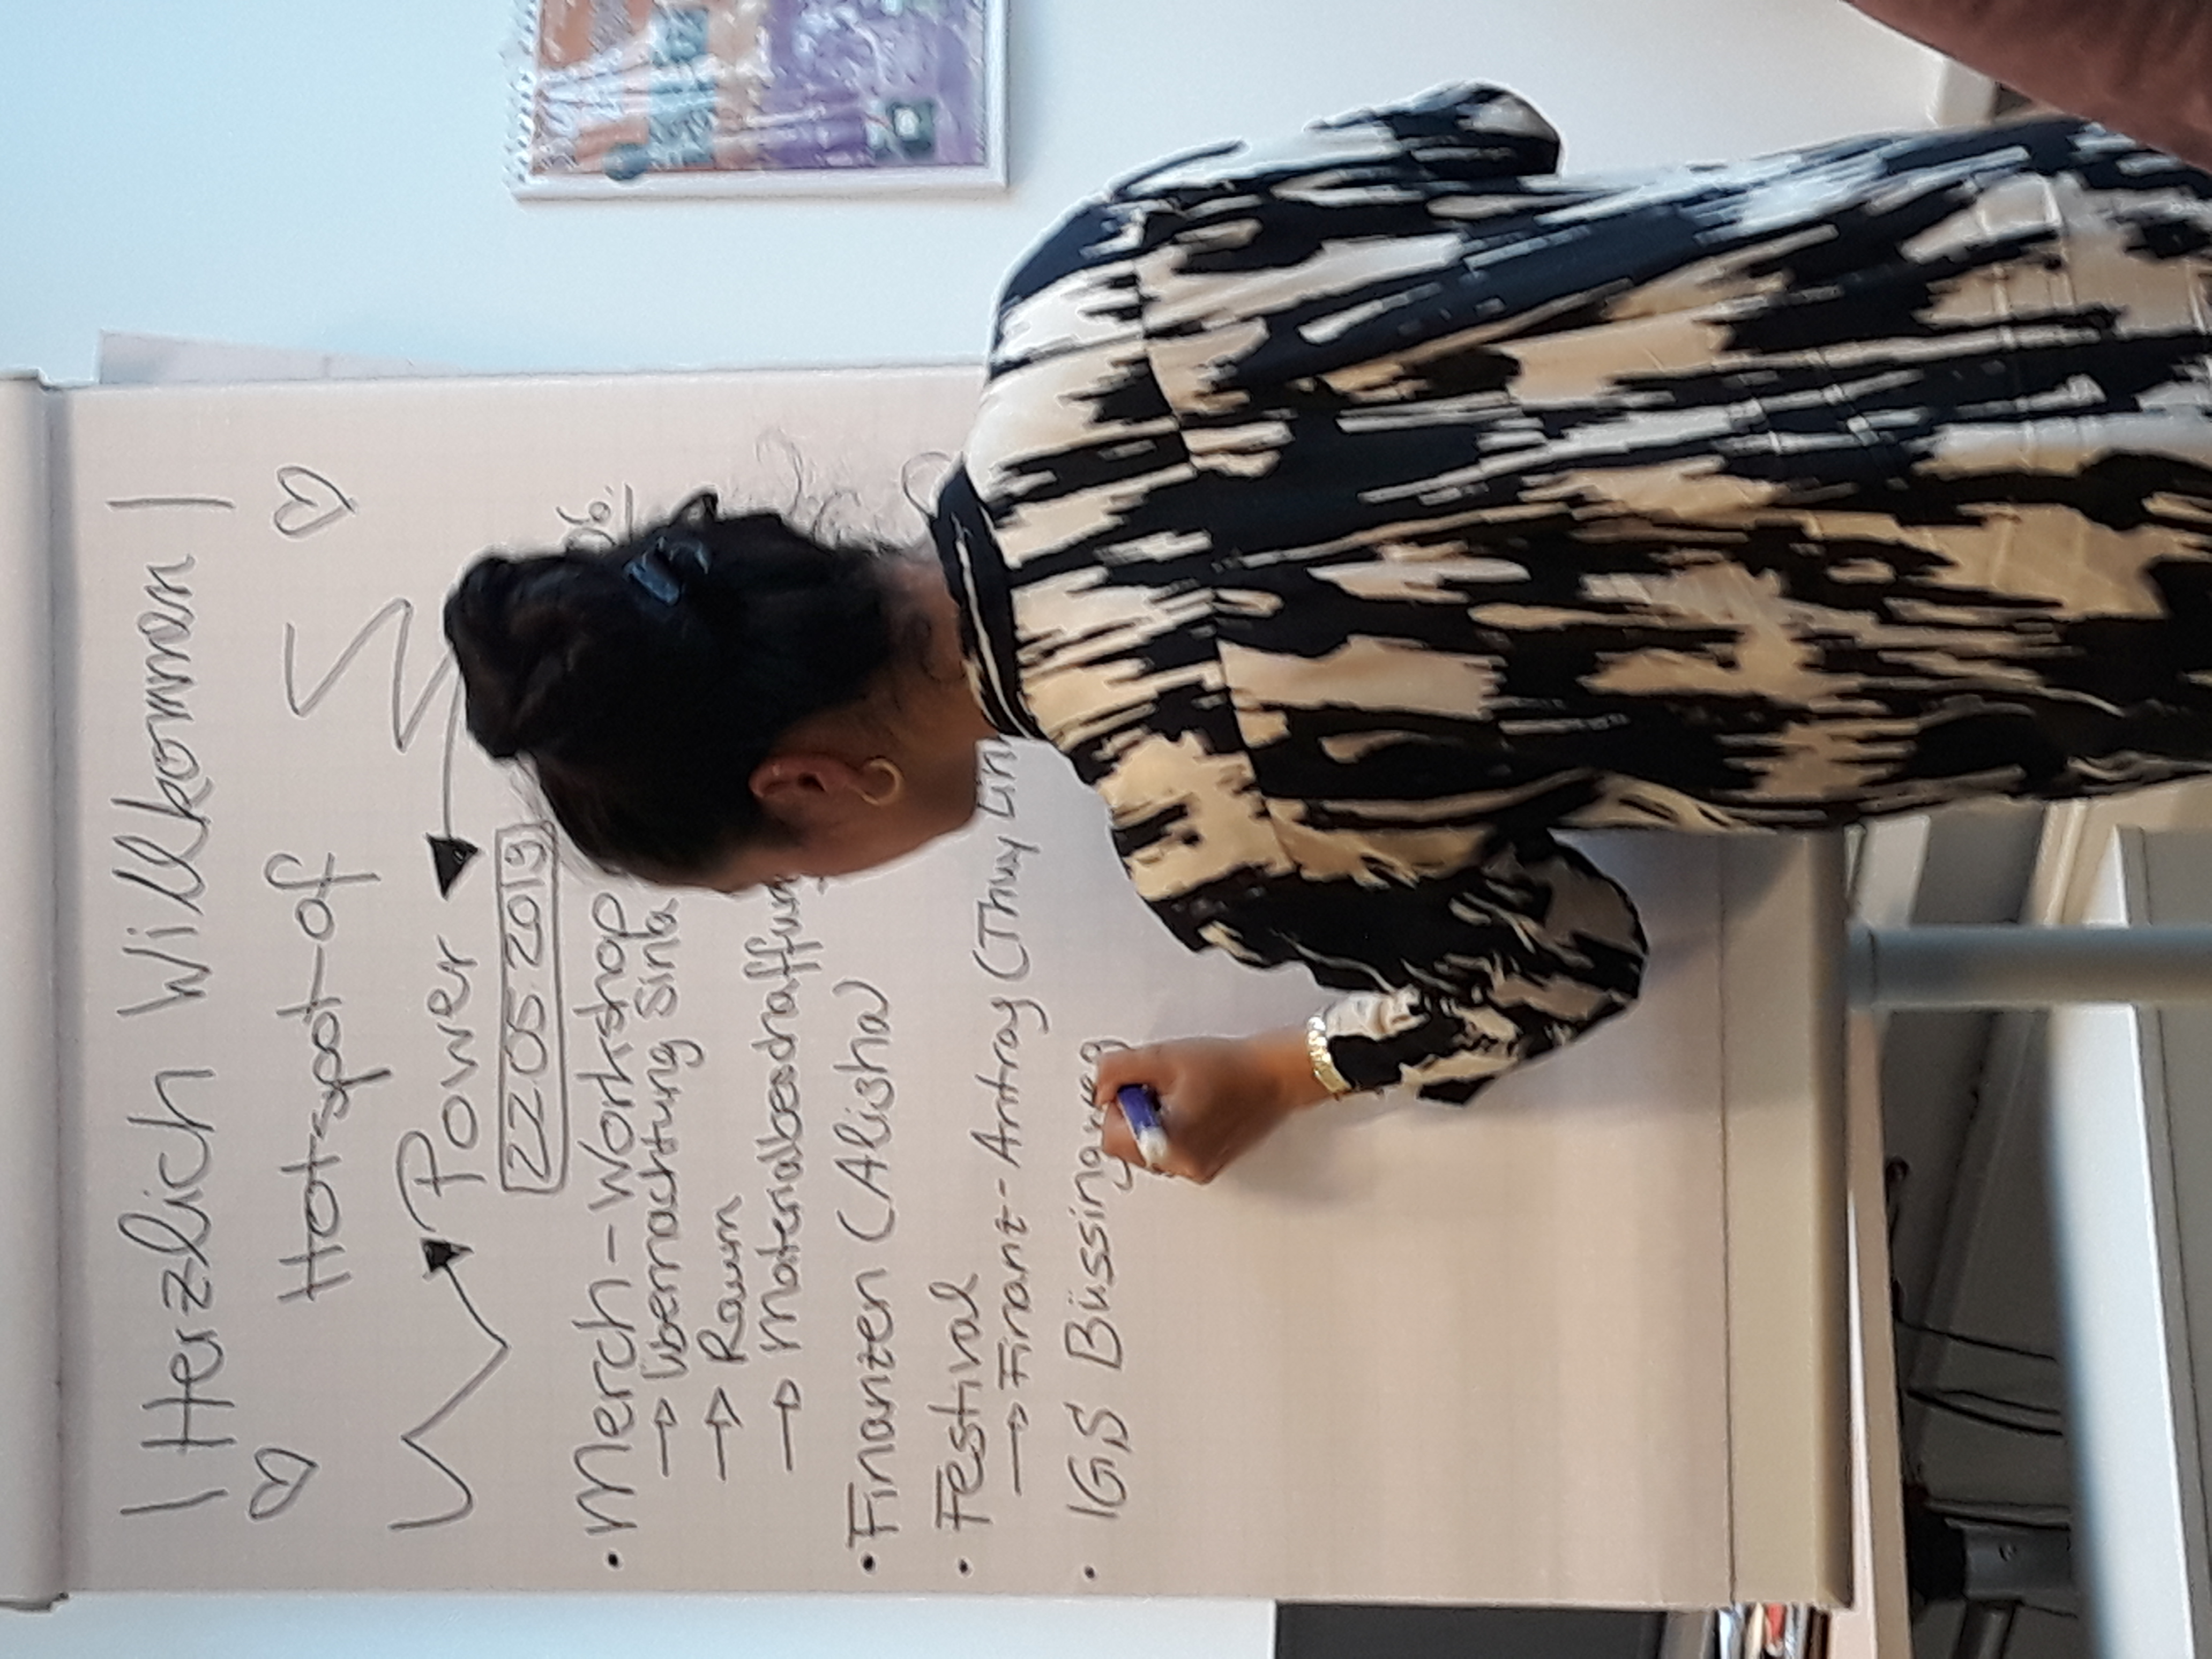 | Herzlich Willkommen |
Hot-spot-of
Power
22.05.2019
• Merch-Workshop 06.
→ Übernachtung Sina
→ Raum
→ Materialbeschaffun
• Finanzen (Alisha)
• Festival
→ Finanz-Antrag (Thuy Lin
• IGS Büssingweg